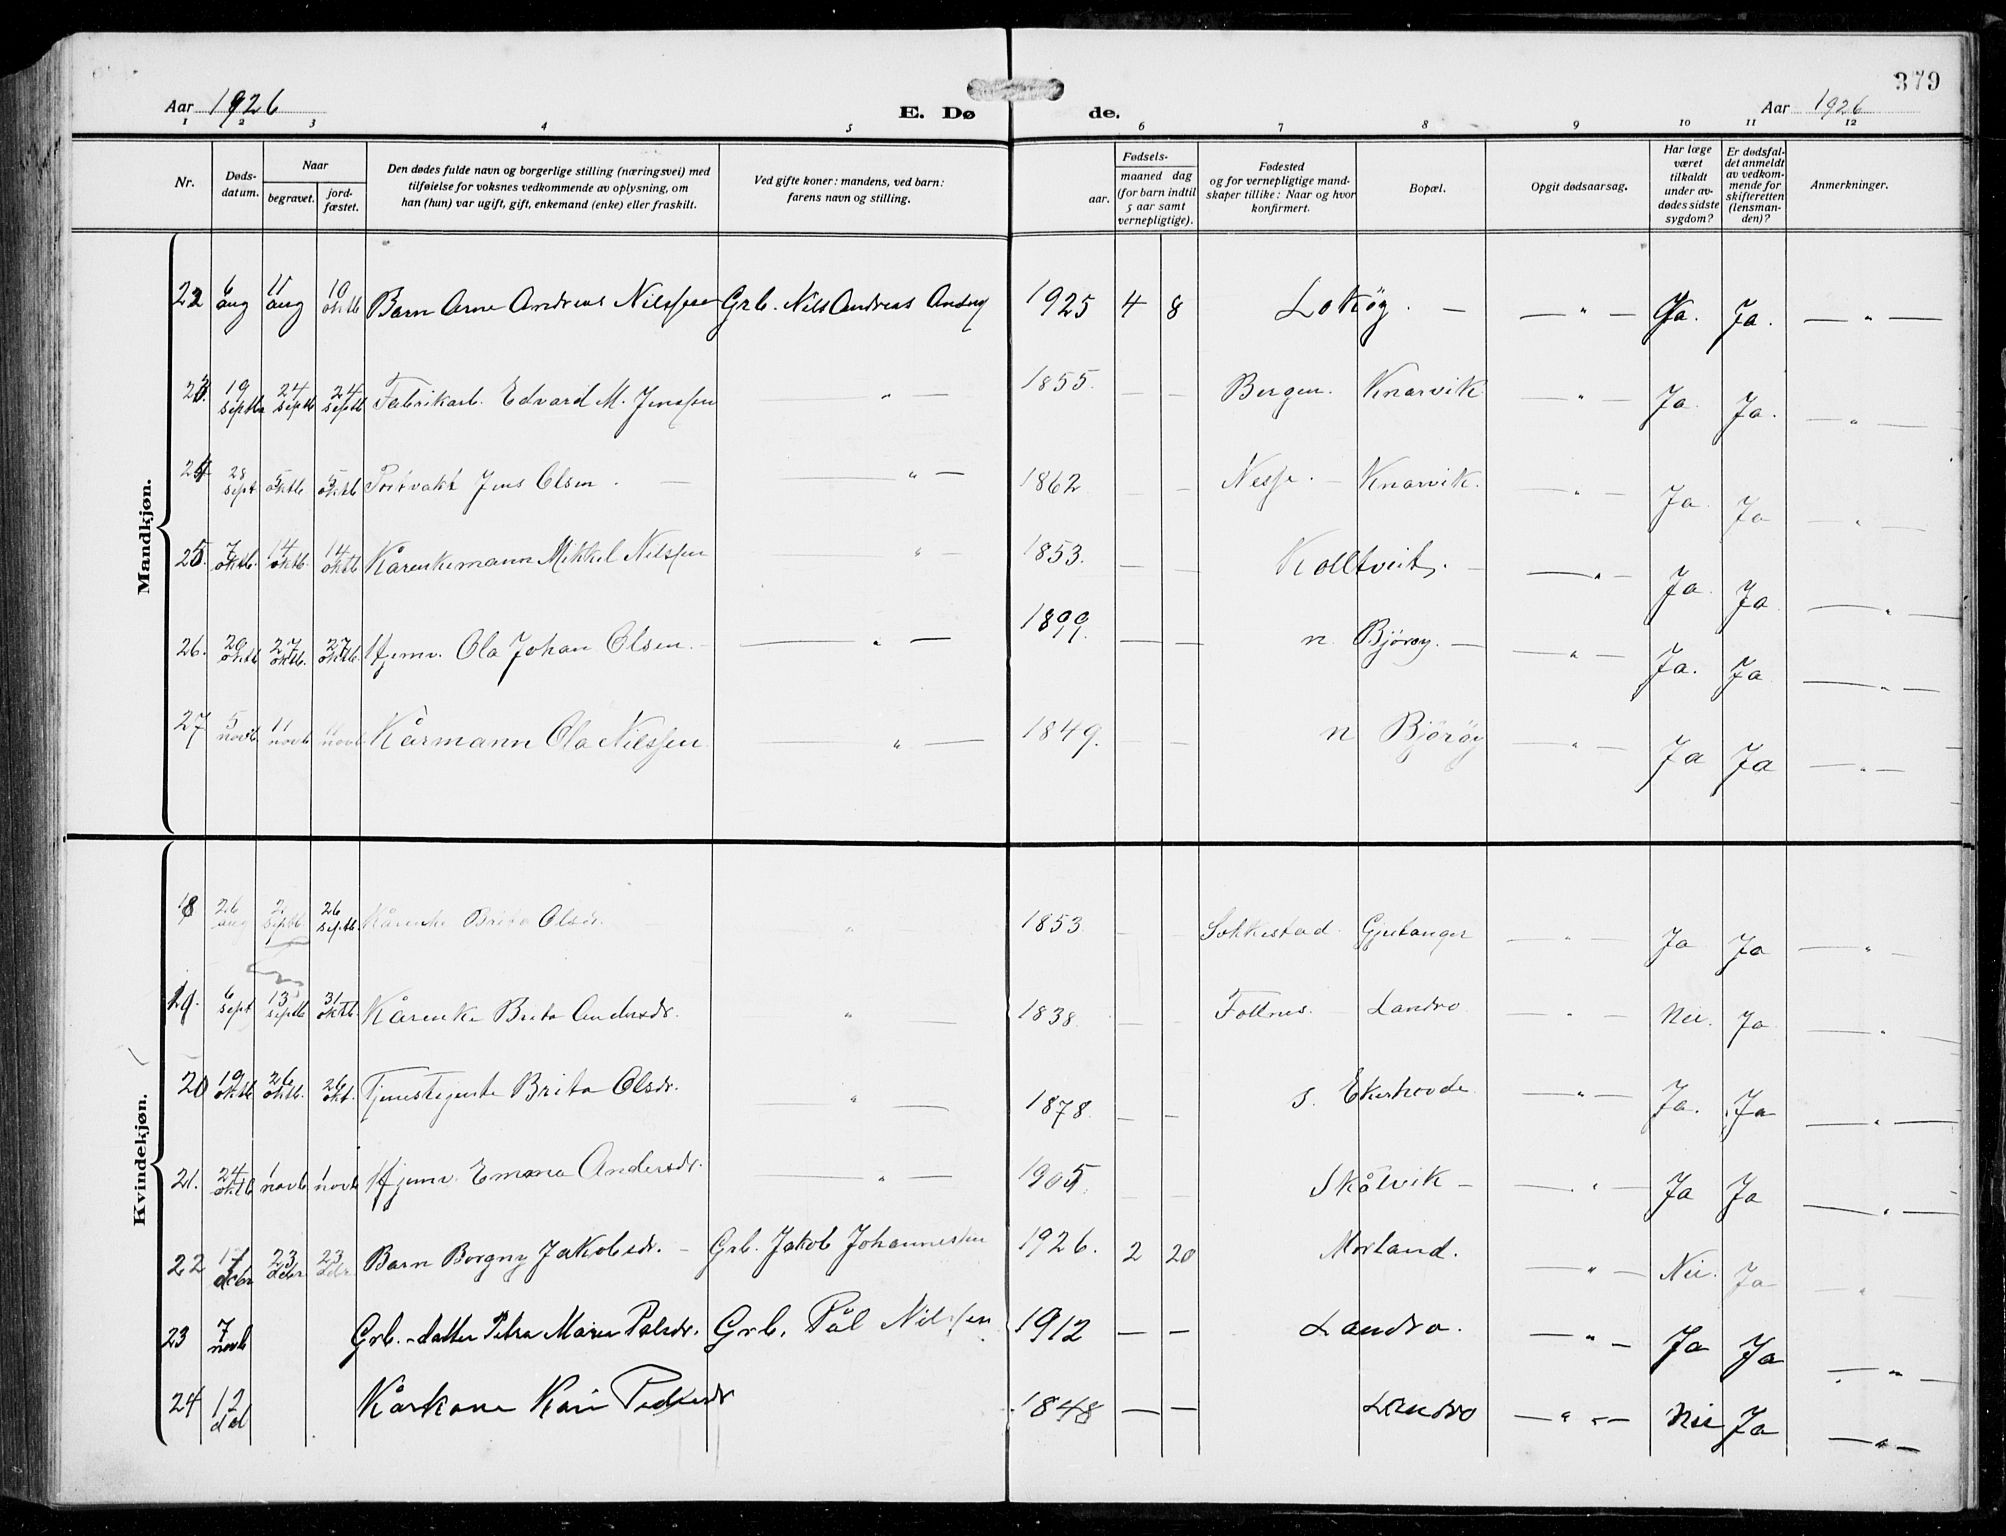 379
Aar 1926 E. Dø de. Aar 1926
1 2 3 4 5 6 7 8 9 10 11 12
Nr. Døds-datum. Naar begravet. jord-fæstet. Den dødes fulde navn og borgerlige stilling (næringsvei) med tilføielse for voksnes vedkommende av oplysning, om han (hun) var ugift, gift, enkemand (enke) eller fraskilt. Ved gifte koner: mandens, ved barn: farens navn og stilling. Fødsels- aar. maaned dag (for barn indtil 5 aar samt vernepligtige). Fødested og for vernepligtige mand-skaper tillike: Naar og hvor konfirmert. Bopæl. Opgit dødsaarsag. Har læge været tilkaldt under av-dødes sidste sygdom? Er dødsfal-det anmeldt av vedkom-mende for skifteretten (lensman-den)? Anmerkninger.
Mandkjøn.
22 6 aug 11 aug 10 oktb Barn Arne Andreas Nilssen Grb. Nils Andreas 1925 4 8 Lokøy. — — " — Ja. Ja. — " —
23. 19 septb 24 septb 24 septb Fabrikarb. Edvard M. Jenssen — " — 1855. — — Bergen. Knarvik — " — Ja. Ja. — " —
24 28 sept 5 oktb 5 oktb Portvakt Jens Olsen. — — " — 1862 — — Nesse. — Knarvik. — " — Ja. Ja — " —
25. 7 oktb. 14 oktb 14 oktb Kårenkemann Mikkel Nilssen — " — 1853. — — Kolltveit. — — " — Ja. Ja — " —
26. 20 oktb 27 oktb. 27 oktb. Hjemv. Ola Johan Olsen. — — " — 1899. — — n. Bjørøy. — — " — Ja. Ja — " —
27 5 novb 11 novb 11 novb Kårmann Ola Nilssen — " — 1849. — — n Bjørøy — " — Ja Ja — " —
Kvindekjøn.
18 26 aug 2 septb 26 septb. Kårenke Brita Olsdr. — — " — 1853 — — Sekkestad Gjetanger — " — Ja Ja — " —
19. 6 sept 13 septb 31 oktb Kårenke Brita Andersdr. — " — 1838. — — Follnes. Landro — " — Nei. Ja — " —
20 19 oktb 26 oktb. 26 okt. Tjenestejente Brita Olsdr. — " — 1878. — — s. Ekerhovde — " — Ja. Ja — " —
21. 24 oktb 1 novb 1 novb Hjemv. Emma Andersdr. — " — 1905. — — Skålvik — — " — Ja Ja — " —
22 17 debr 23 debr 23 Barn Borgny Jakobsdr. — Grb. Jakob Johannessen 1926. 2 20 Morland. — " — Nei. Ja — " —
23 7 novb Grb.-datter Petra Marie Pålsdr. Grb. Pål Nilssen 1912 — — Landro. — " — Ja Ja — " —
24 12 Kårkone Kari Pedersdr 1848 — — Landro — " — Nei Ja — " —